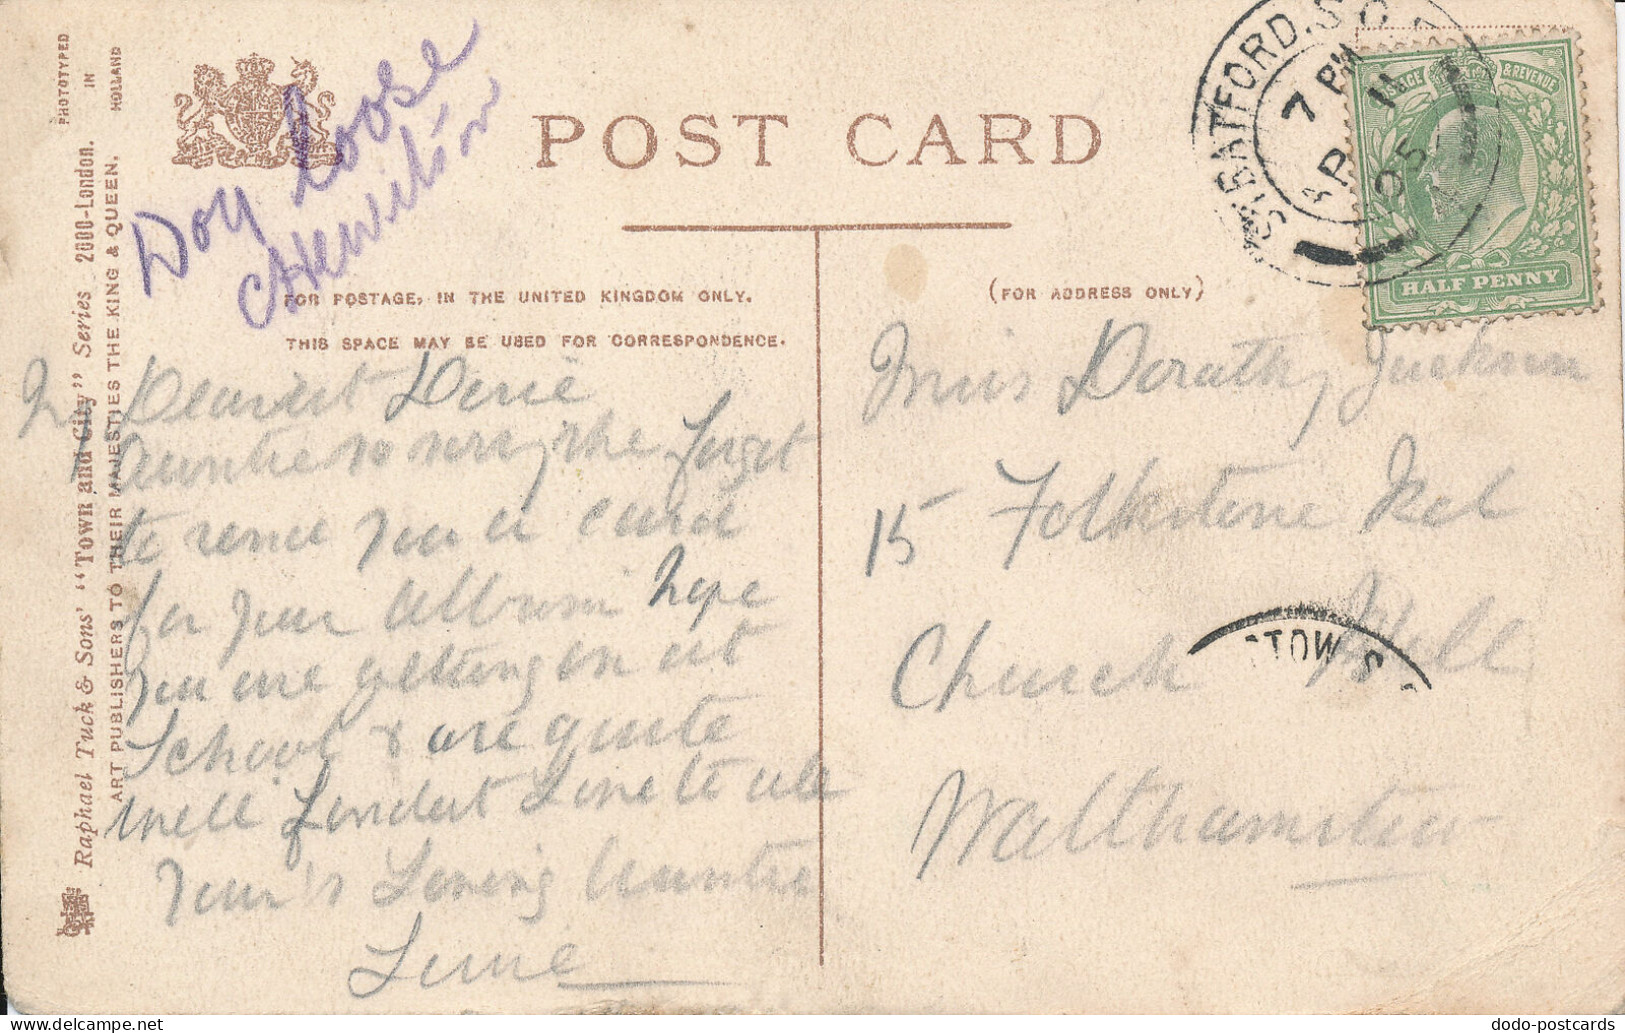 PHOTOTYPED IN HOLLAND
Raphael Tuck & Sons' "Town and City" Series 2000-London.
ART PUBLISHERS TO THEIR MAJESTIES THE KING & QUEEN.
POST CARD
FOR POSTAGE, IN THE UNITED KINGDOM ONLY.
THIS SPACE MAY BE USED FOR CORRESPONDENCE.
(FOR ADDRESS ONLY)
STRATFORD. S.O.
7 PM
AP 11
05
POSTAGE & REVENUE
HALF PENNY
My Dearest
Auntie so sorry she forgot
to send you a card
for your Album hope
you are getting on at
School & are quite
well Fondest Love to all
Your's Loving Auntie
Miss Dorothy
15 Folkstone Rd
Church Hill
Walthamstow
STOW. S
dodo-postcards